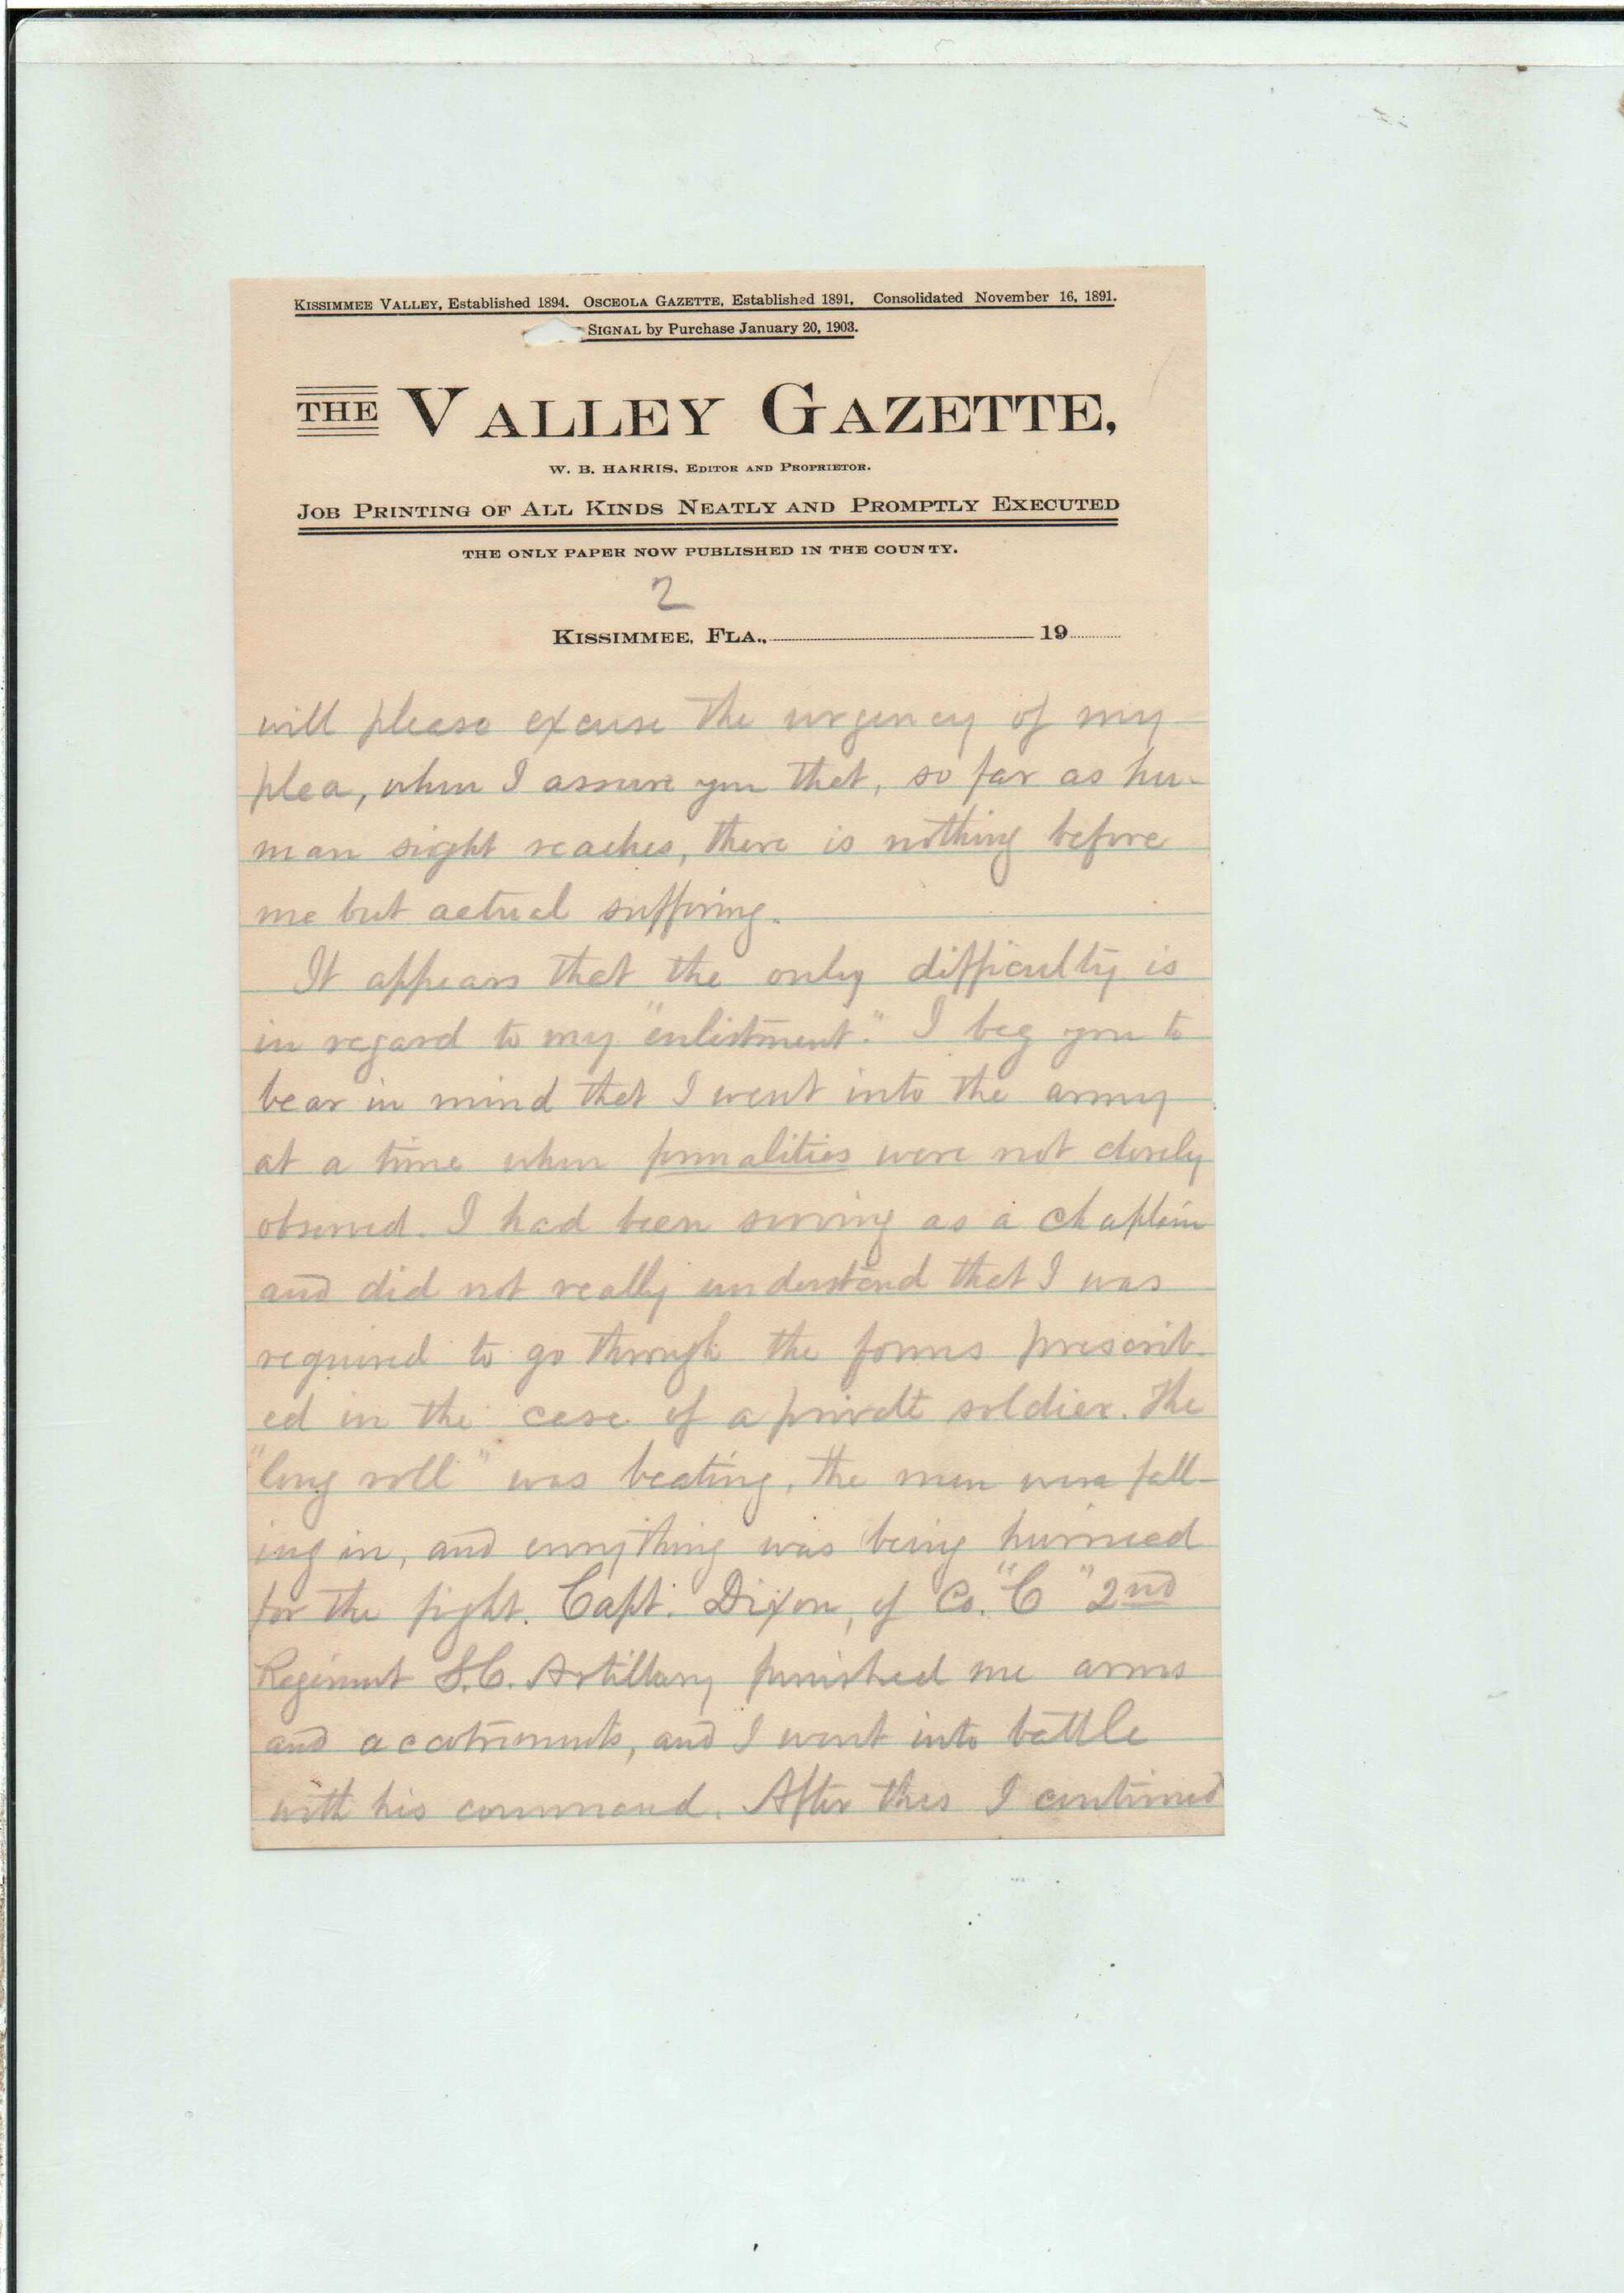 KISSIMMEE VALLEY, Established 1894. OSCEOLA GAZETTE, Established 1891, Consolidated November 16, 1891.
SIGNAL by Purchase January 20, 1903.
THE VALLEY GAZETTE,
W. B. HARRIS, EDITOR AND PROPRIETOR.
JOB PRINTING OF ALL KINDS NEATLY AND PROMPTLY EXECUTED
THE ONLY PAPER NOW PUBLISHED IN THE COUNTY.
2
KISSIMMEE, FLA., 19
will please excuse the urgency of my
plea, when I assure you that, so far as hu-
man sight reaches, there is nothing before
me but actual suffering.
It appears that the only difficulty is
in regard to my "enlistment." I beg you to
bear in mind that I went into the army
at a time when formalities were not closely
observed. I had been serving as a chaplain
and did not really understand that I was
required to go through the forms prescrib-
ed in the case of a private soldier. The
"long roll" was beating, the men were fall-
ing in, and everything was being hurried
for the fight. Capt. Dixon, of Co. "C" 2nd
Regiment S.C. Artillery furnished me arms
and accotrements, and I went into battle
with his command. After this I continued